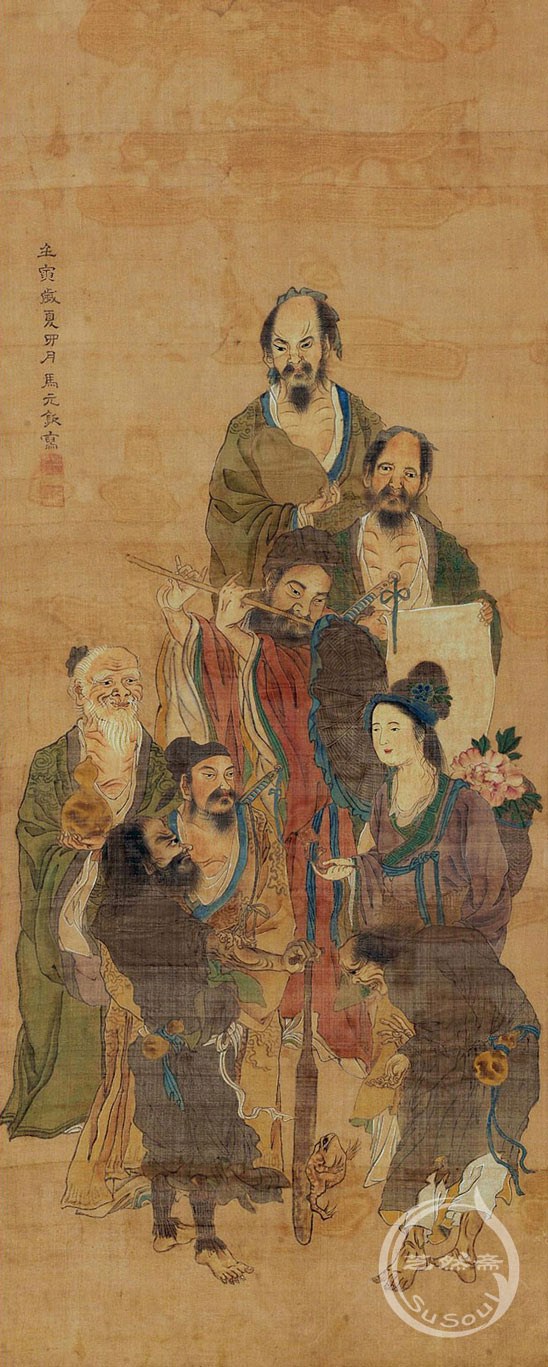 壬寅歲夏四月馬元欽寫
然斋
SuSoul